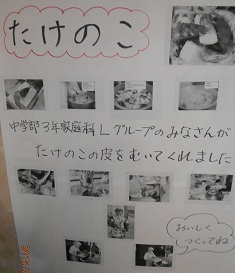 たけのこ
中学部3年家庭科Lグループのみなさんが
たけのこの皮をむいてくれました
おいしく
つくってね